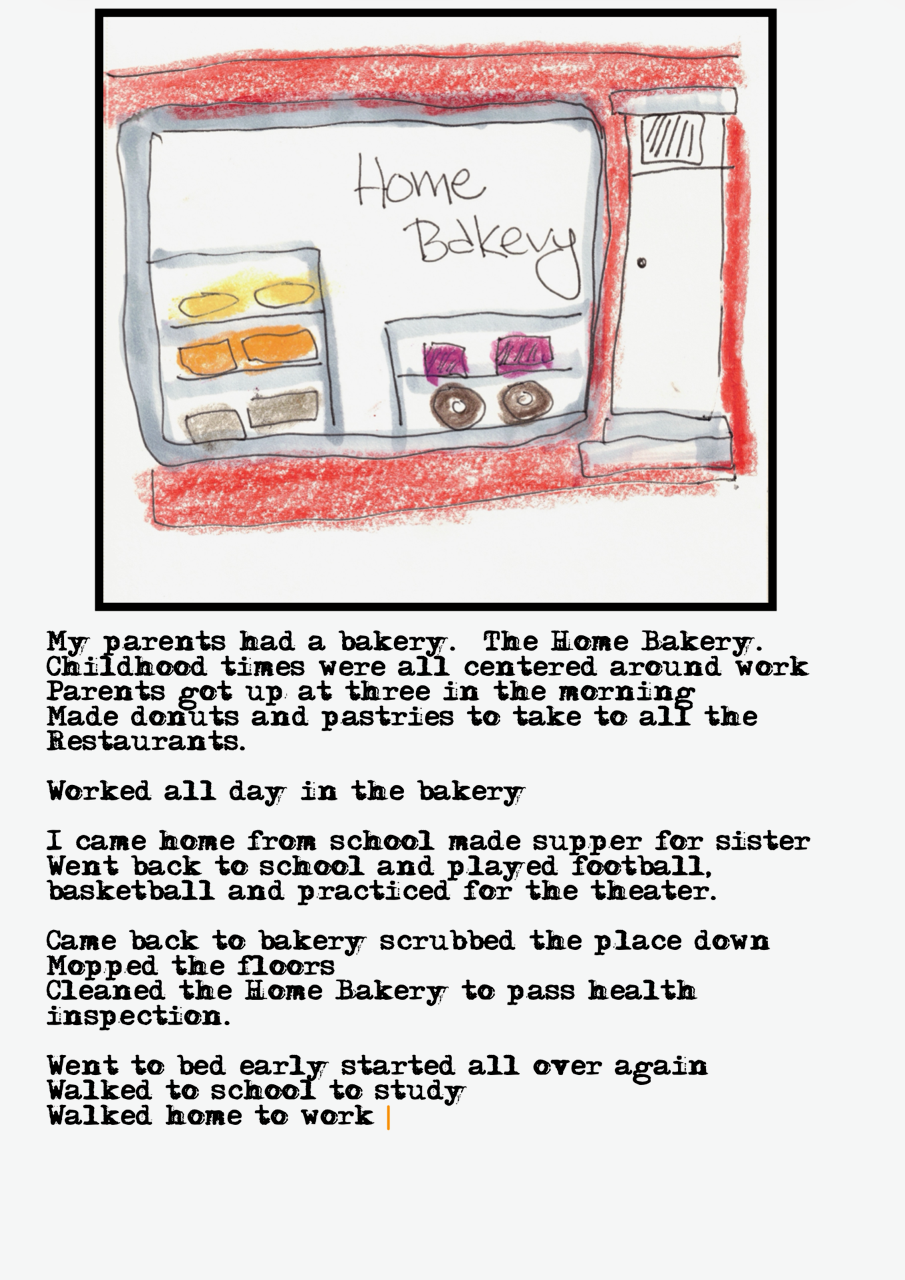 Home
Bakery
My parents had a bakery.  The Home Bakery.
Childhood times were all centered around work
Parents got up at three in the morning
Made donuts and pastries to take to all the
Restaurants.
Worked all day in the bakery
I came home from school made supper for sister
Went back to school and played football,
basketball and practiced for the theater.
Came back to bakery scrubbed the place down
Mopped the floors
Cleaned the Home Bakery to pass health
inspection.
Went to bed early started all over again
Walked to school to study
Walked home to work